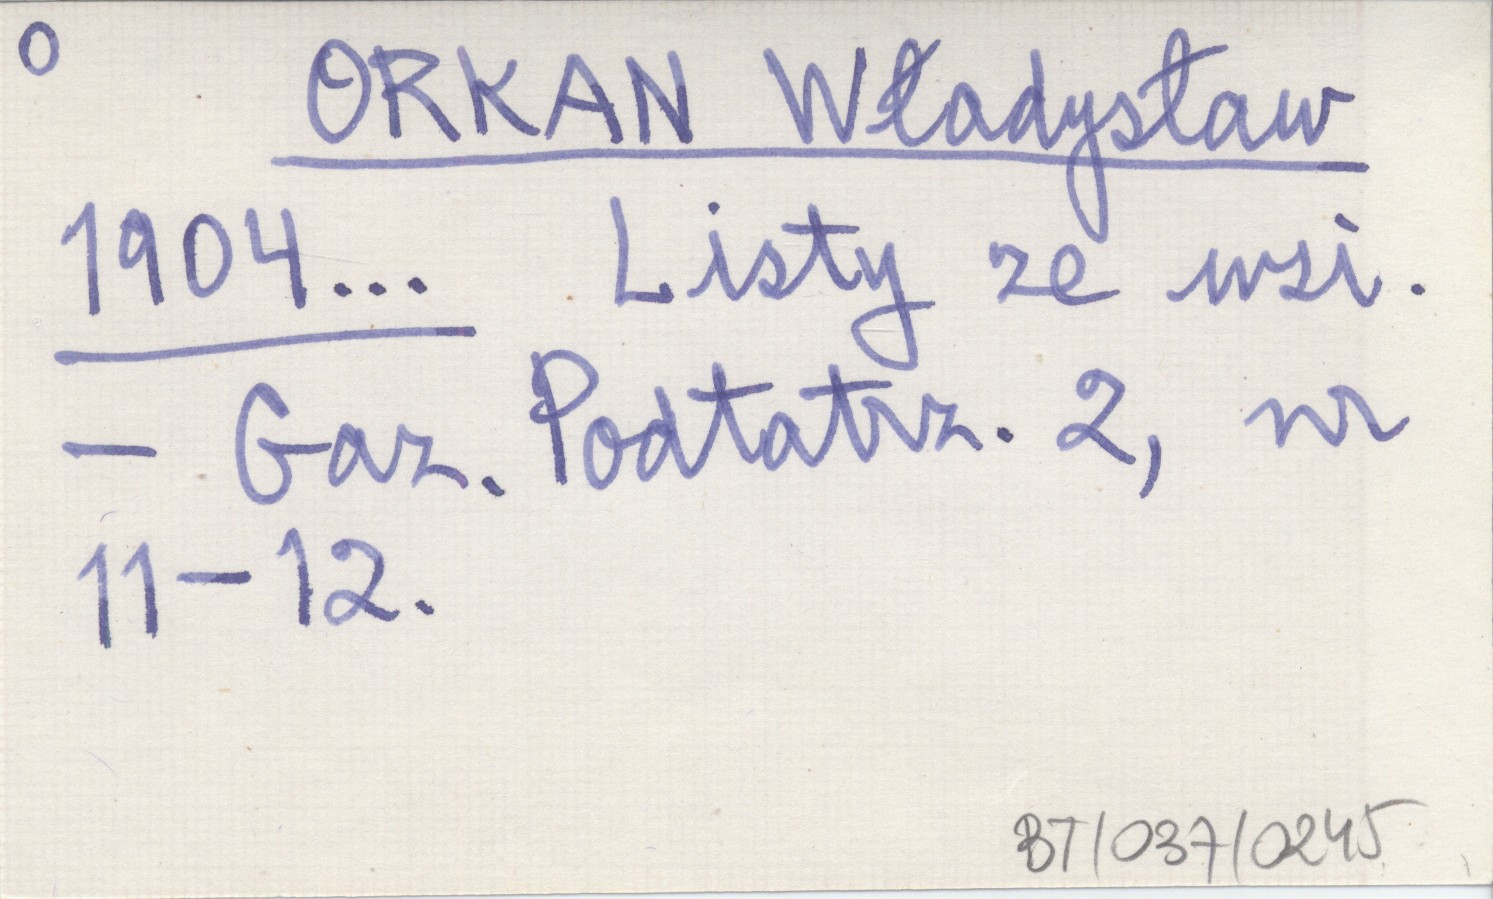 O
ORKAN Władysław
1904... Listy ze wsi.
- Gaz. Podtatrz. 2, nr
11-12.
BT/037/0245